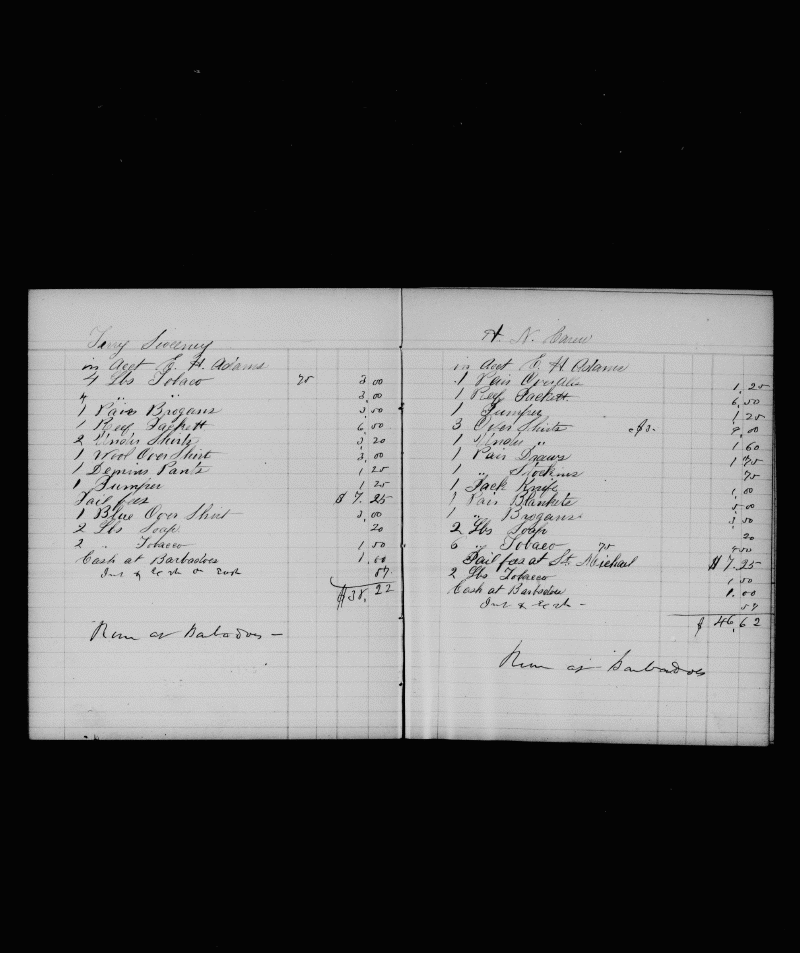 Sweeney
in Acct E. H. Adams
4 Lbs Tobaco 75 3,00
4 " " 3,00
1 Pair Brogans 3,00
1 Reef Jackett 6,00
2 Under Shirts 3,20
1 Wool Over Shirt 3,00
1 Demins Pants 1,25
1 Jumper 1,25
Jail fees $7.25
1 Blue Over Shirt 3,00
2 Lbs Soap 20
2 " Tobacco 1,50
Cash at Barbadoes 1.00
Int & 57
$38,22
at Barbados —
H. N.
in Acct E. H. Adams
1 Pair Overalls 1,25
1 Reef Jackett 6,50
1 Jumper 1,25
3 Over Shirts $3. 9,00
1 Under " 1,60
1 Pair Draws 1,75
1 " Stockins 75
1 Jack Knife 1,00
1 Pair Blankets 5,00
1 " Brogans 3,50
2 Lbs Soap 20
6 " Tobaco 75 4,50
Jail fees at St. Michael $7.25
2 Lbs Tobacco 1,50
Cash at Barbadoes 1.00
Int & 57
$46,62
at Barbadoes